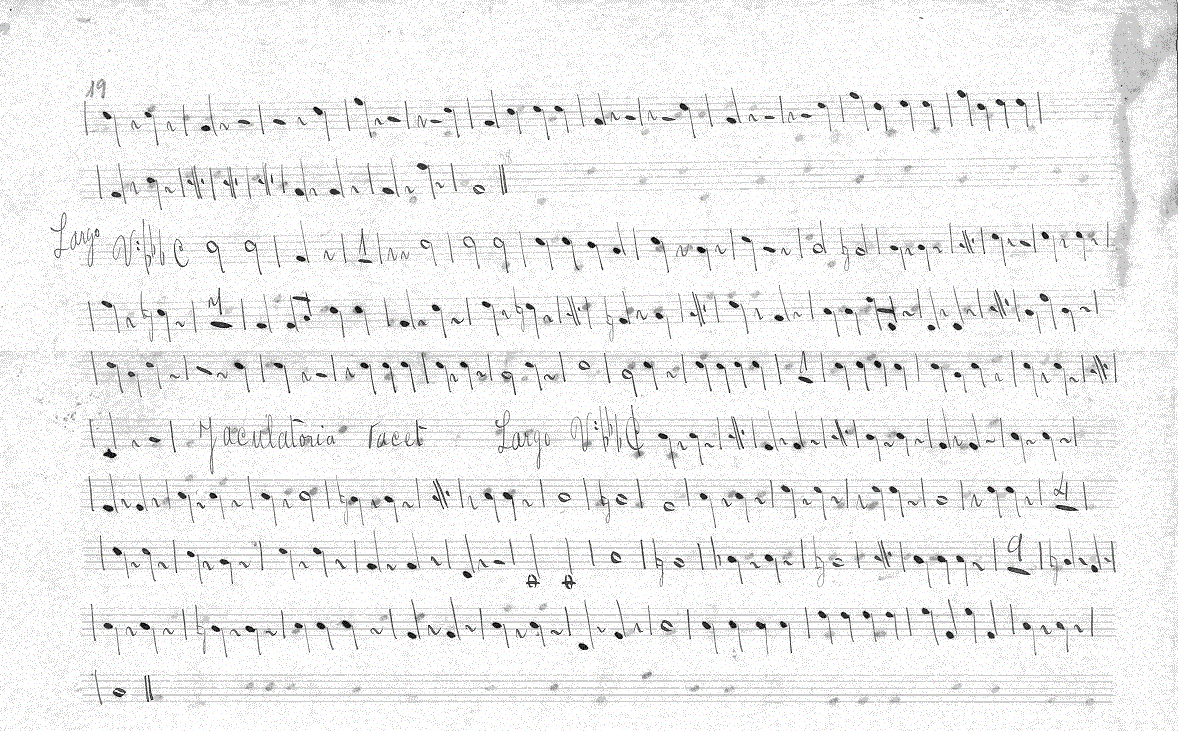 19
Largo
Jaculatoria Tacet Largo